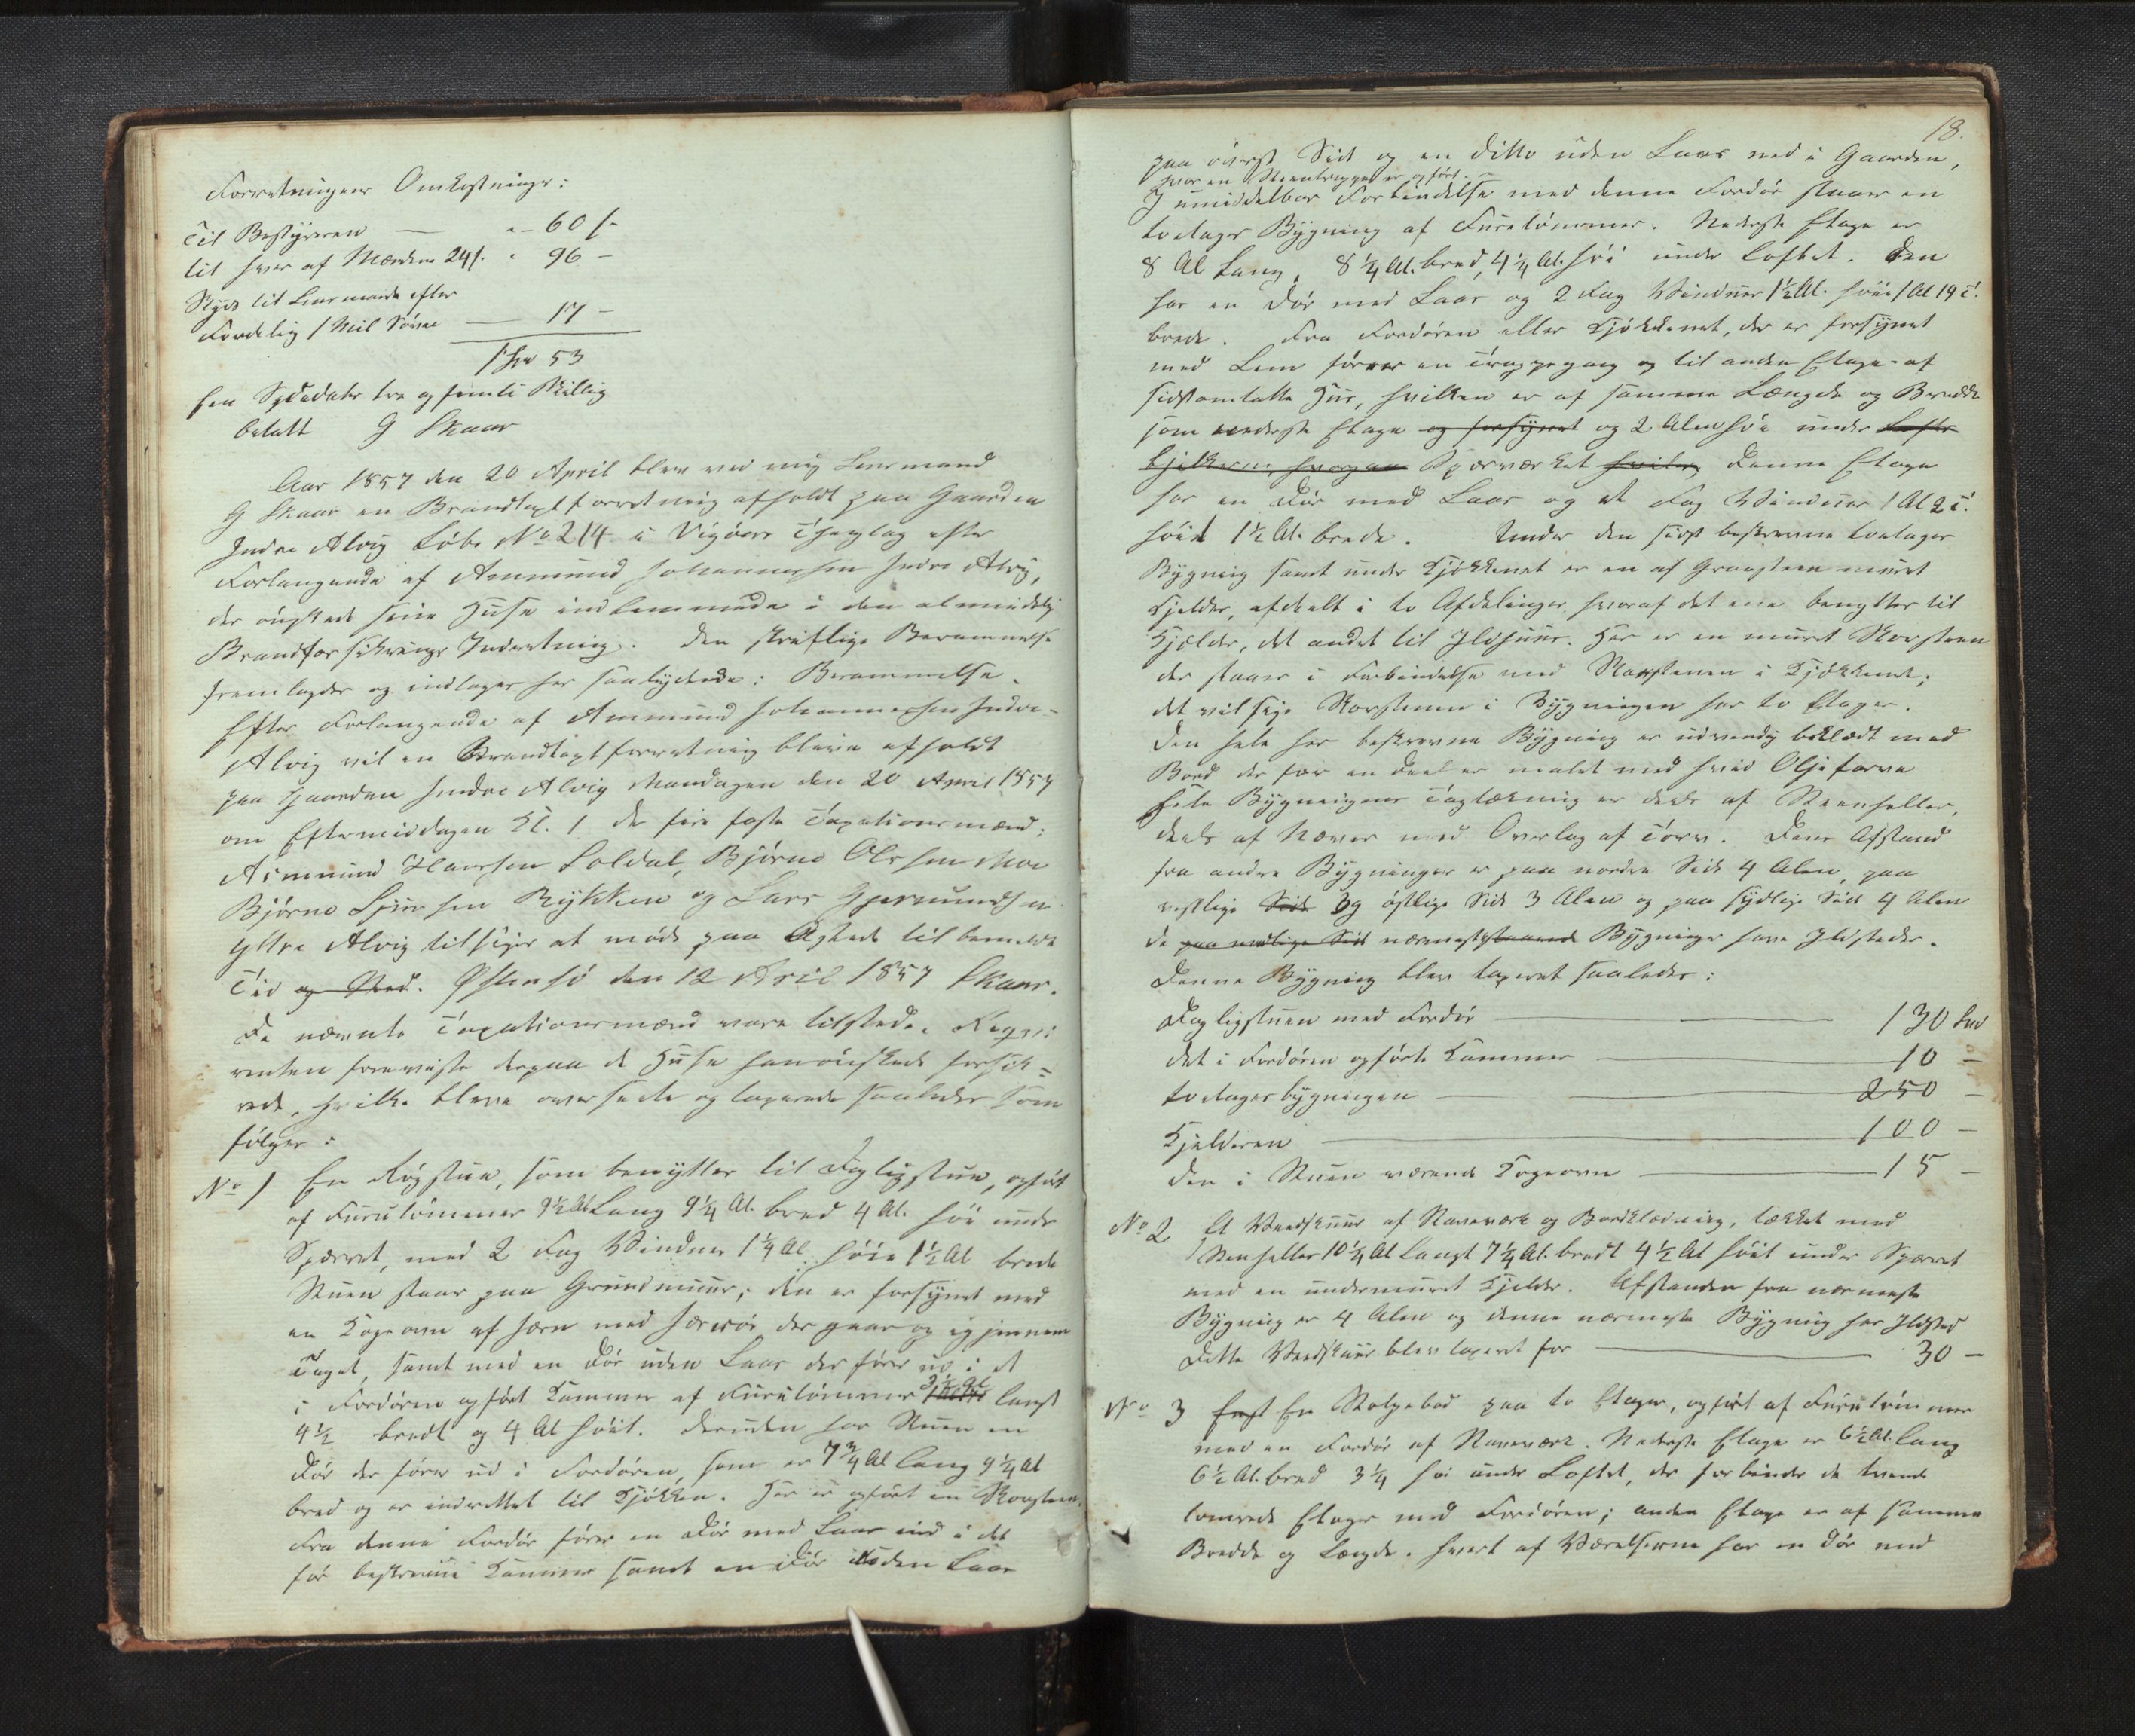 Forretningens Omkostninger:
Til Bestyreren — " — 60 s
til hver af Mændene 24 s. " 96 —
Skyds til Lensmanden efter
Fordeling 1 Miil Søvei — 17 —
1 Spd 53
Een Speciedaler tre og femti Skilling
betalt G Skaar
Aar 1857 den 20 April blev ved mig Lensmand
G Skaar en Brandtaxtforretning afholdt paa Gaarden
Indre Alvig Løbe No 214 i Vigøers Thinglag efter
Forlangende af Ammund Johannessen Indre Alvig,
der ønskede sine Huse indlemmede i den almindelig
Brandforsikrings Indretning. Den skriftlige Berammelse
fremlagdes og indtages her saalydende: Berammelse.
Efter Forlangende af Ammund Johannessen Indre
Alvig vil en Brandtaxtforretning blive afholdt
paa Gaarden Indre Alvig Mandagen den 20 April 1857
om Eftermiddagen Kl. 1 De fire faste Taxationsmænd:
Aammund Hansen Soldal, Bjørne Olsen Moe
Bjørne Sjursen Rykken og Lars Gjermundsen
Yttre Alvig tilsiges at møde paa Aastedet til bemeldte
Tid og Sted. Østensø den 12 April 1857 Skaar.
De nævnte Taxationsmænd vare tilstede. Reqvi-
renten foreviste derpaa de Huse han ønskede forsik-
rede, hvilke bleve overseede og taxerede saaledes som
følger:
No 1 En Røgstue, som benyttes til Dagligstue, opført
af Furutømmer 9½ Al. Lang 9¼ Al. bred 4 Al. høi under
Sperret, med 2 Fag Vinduer 1¼ Al. høie 1½ Al brede
Stuen staar paa Grundmuur; den er forsynet med
en Kogeovn af Jern med Jernrør der gaar op igjennem
Taget, samt med en Dør uden Laas der fører ud i et
i Fordøren opført Kammer af Furutømmer 3½ Al langt
4½ bredt og 4 Al høit. Desuden har Stuen en
Dør der fører ud i Fordøren, som er 7¾ Al lang 4¼ Al
bred og er indrettet til Kjøkken. Her er opført en Skorsteen.
Fra denne Fordør fører en Dør med Laas ind i det
før beskrevne Kammer samt en Dør uden Laas
18.
paa øverst Side og en Ditto uden Laas ned i Gaarden,
hvor en Steentrappe er opført.
I umiddelbar Forbindelse med denne Fordør staar en
toetages Bygning af Furetømmer. Nederste Etage er
8 Al Lang, 8¼ Al. bred, 4¼ Al. høi under Loftet. Den
har en Dør med Laas og 2 Fag Vinduer 1½ Al. høie 1 Al 19 T.
brede. Fra Fordøren eller Kjøkkenet, der er forsynet
med Lem fører en Trappegang op til anden Etage af
sidstomtalte Huus, hvilken er af samme Længde og Bredde
som nederste Etage og forsynet og 2 Alen høi under Lofts
bjelkerne, hvorpaa Sperværket hviler, Denne Etage
har en Dør med Laas og et Fag Vinduer 1 Al 2 T.
høit 1½ Al. brede. Under den sidst beskrevne toetages
Bygning samt under Kjøkkenet er en af Graasteen muret
Kjelder, afdeelt i to Afdelinger hvoraf det ene benyttes til
Kjelder, det andet til Ildhuus. Her er en muret Skorsteen
der staar i Forbindelse med Skorstenen i Kjøkkenet;
det vil sige Skorstenen i Bygningen har to Etager.
Den hele her beskrevne Bygning er udvendig beklædt med
Bord der for en Deel er malet med hvid Oljefarve
Hele Bygningens Tagtækning er deels af Steenheller,
deels af Næver med Overlag af Tørv. Dens Afstand
fra andre Bygninger er paa nordre Side 4 Alen, paa
vestlige Side og østlige Side 3 Alen og paa sydlige Side 4 Alen
De paa nordlige Side nærmeststaaende Bygninger have Ildsteder.
Denne Bygning blev taxeret saaledes:
Dagligstuen med Fordør — 130 Spd
det i Fordøren opførte Kammer — 10 —
toetagesbygningen — 250 —
Kjelderen — 100 —
den i Stuen værende Kogeovn — 15 —
No 2 Et Vedskuur af Staveværk og Bordklædning, tækket med
Steenheller 10¼ Al Langt 7¼ Al. bredt 4½ Al høit under Sperret
med en undermuret Kjelder. Afstanden fra nærmeste
Bygning er 4 Alen og denne nærmeste Bygning har Ildsted
Dette Vedskuur blev taxeret for — 30 —
No 3 En Stolpebod paa to Etager, opført af Furutømmer
med en Fordør af Staveværk. Nederste Etage er 6½ Al. lang
6½ Al. bred 3¼ høi under Loftet, der forbinder de tvende
tømrede Etager med Fordøren; anden Etage er af samme
Bredde og Længde. Hvert af Værelserne har en Dør med